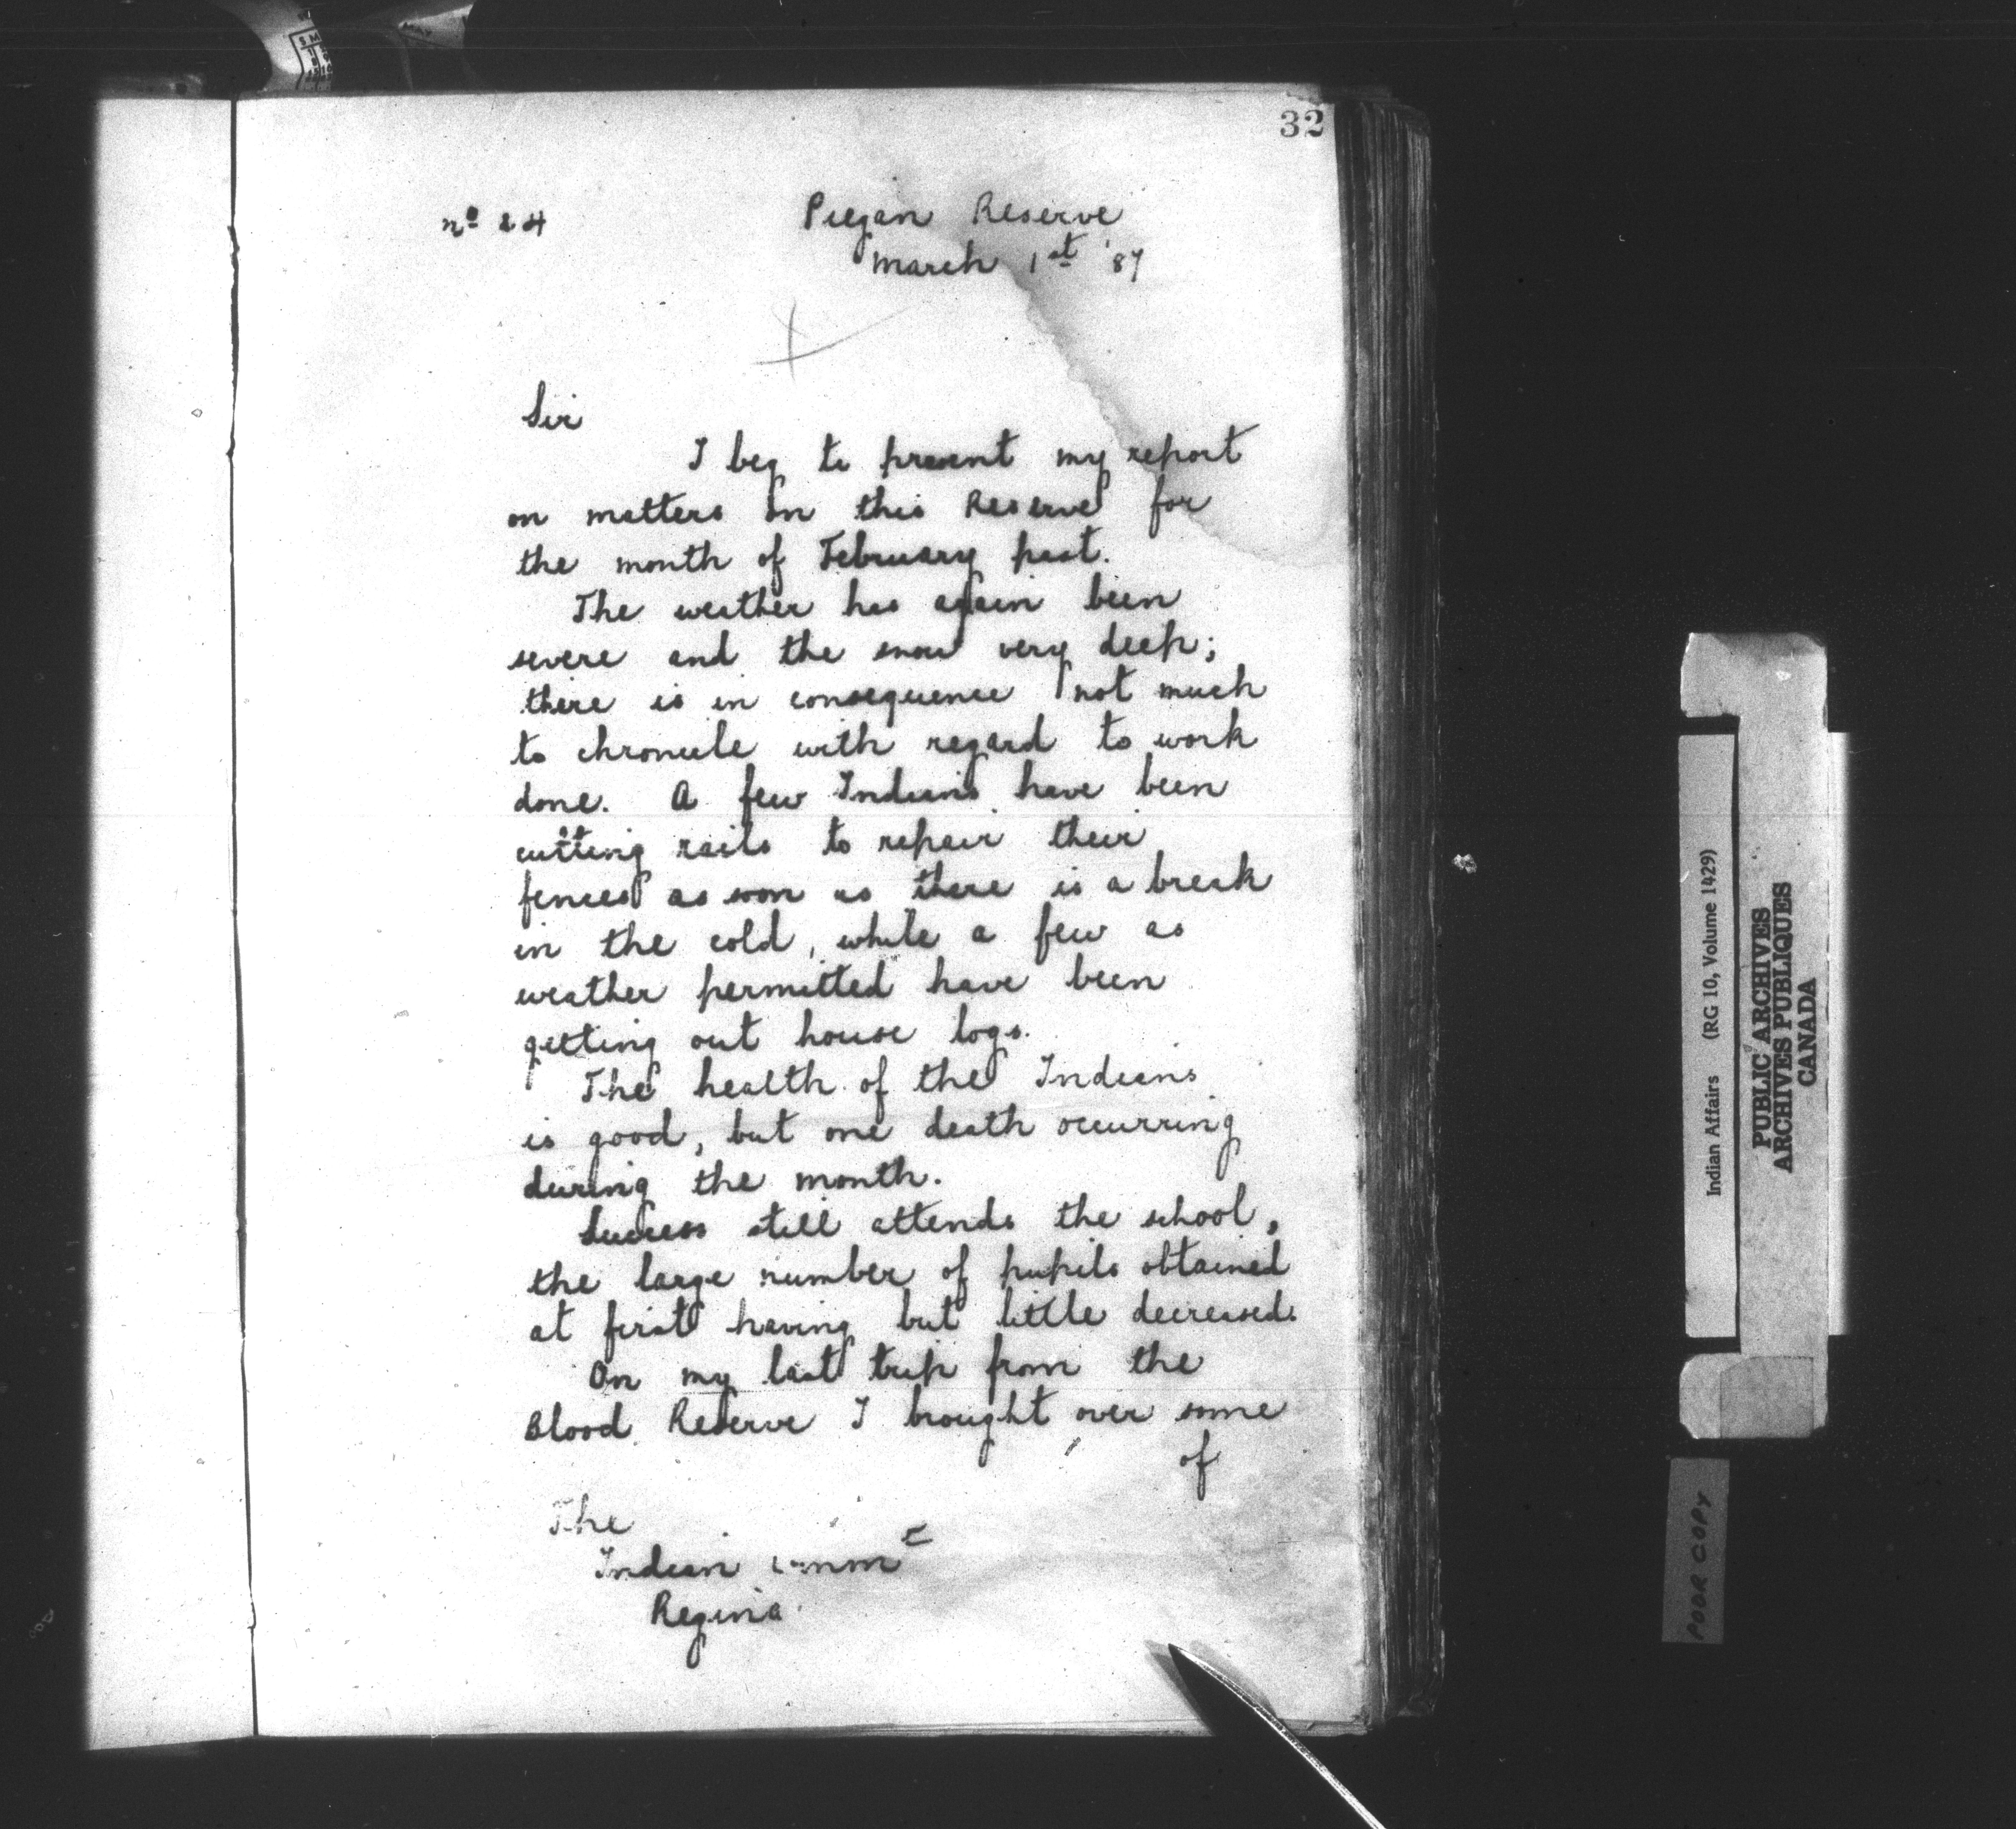 32
No 24
Piegan Reserve
March 1st '87
Sir
I beg to present my report
on matters on this Reserve for
the month of February past.
The weather has again been
severe and the snow very deep;
there is in consequence not much
to chronicle with regard to work
done. A few Indians have been
cutting rails to repair their
fences as soon as there is a break
in the cold, while a few as
weather permitted have been
getting out house logs.
The health of the Indians
is good, but one death occurring
during the month.
Success still attends the school,
the large number of pupils obtained
at first having but little decreased.
On my last trip from the
Blood Reserve I brought over some
of
The
Indian Commr
Regina
Indian Affairs (RG 10, Volume 1429)
PUBLIC ARCHIVES
ARCHIVES PUBLIQUES
CANADA
POOR COPY